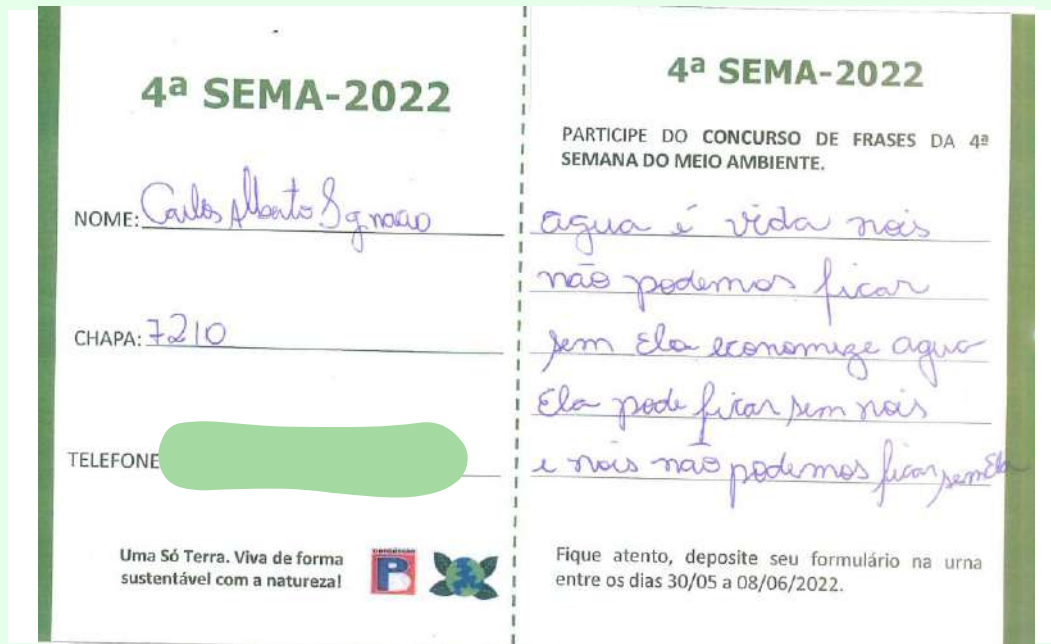 4ª SEMA-2022
NOME: Carlos Alberto Ignacio
CHAPA: 7210
TELEFONE
Uma Só Terra. Viva de forma
sustentável com a natureza!
4ª SEMA-2022
PARTICIPE DO CONCURSO DE FRASES DA 4ª
SEMANA DO MEIO AMBIENTE.
agua é vida nois
não podemos ficar
sem Ela economize agua
Ela pode ficar sem nois
e nois não podemos ficar sem Ela
Fique atento, deposite seu formulário na urna
entre os dias 30/05 a 08/06/2022.